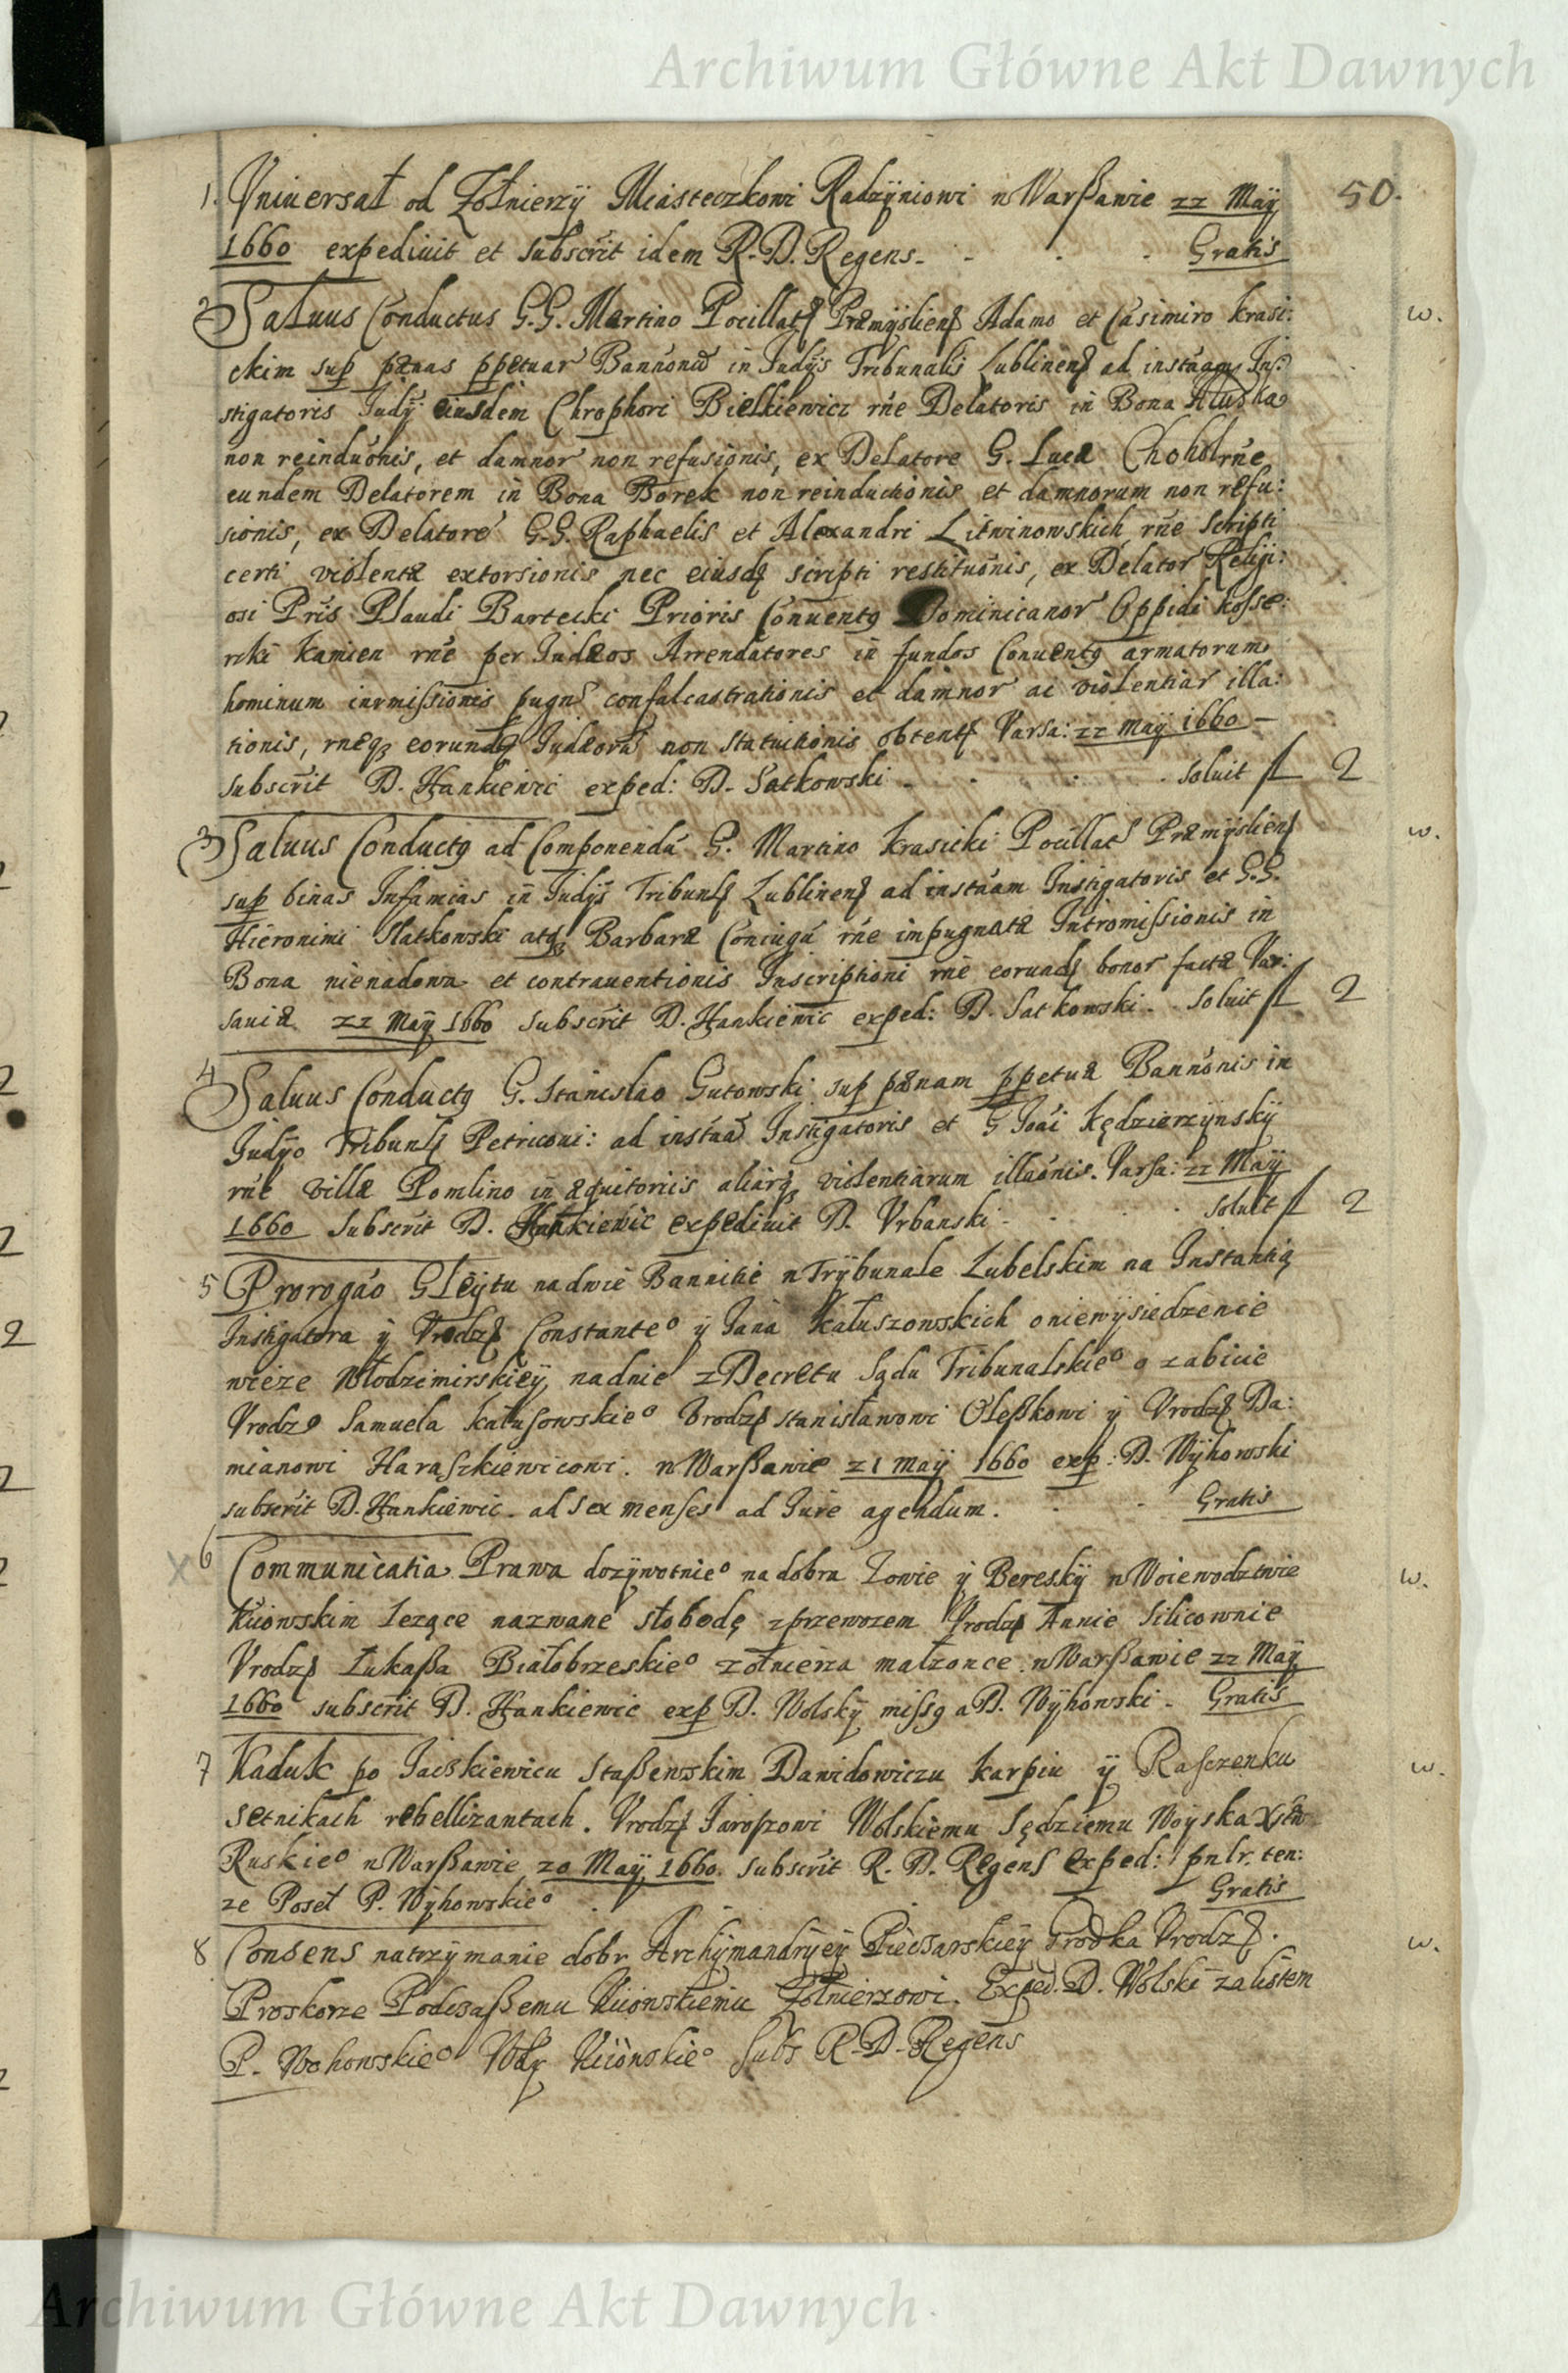 Archiwum Główne Akt Dawnych
50.
1. Vniuersał od Żołnierzÿ Miasteczkowi Radzÿniowi w Warßawie 22 Maÿ
1660 expediuit et subscrit idem R. D. Regens. Gratis
2 Saluus Conductus G.G. Martino Pocillat Præmÿsliens Adamo et Casimiro Krasi: w.
ckim sup pænas ppetuar Bannonũ in Judÿs Tribunalis Lublinens ad instãam In:
stigatoris Judÿ eiusdem Chrophori Bielkiewicz rñe Delatoris in Bona
non reinduõnis, et damnor non refusionis, ex Delatore G. Lucæ Chohol rñe
eundem Delatorem in Bona Borek non reinductionis et damnorum non refu:
sionis, ex Delatore G.G. Raphaelis et Alexandri Litwinowskich rñe scripti
certi violentæ extorsionis nec eiusd scripti restituõnis, ex Delator Religi:
osi Pris Plaudi Bartecki Prioris Conuentq Dominicanor Oppidi Kosse:
rcki Kamien rñe per Judæos Arrendatores in fundos Conuentq armatorum
hominum inrmissionis pugn confalcastrationis et damnor ac violentiar illa:
tionis, rneq eorund Judæorũ non statuitionis obtent Varsa: 22 Maÿ 1660 —
subscrit D. Hankiewic exped: D. Satkowski. soluit fl 2
3 Saluus Conductq ad Componendũ G. Martino Krasicki Pocillat Præmÿsliens w.
sup binas Infamias in Judÿs Tribunls Lublinens ad instãam Instigatoris et G.G.
Hieronimi Slatkowski atq Barbaræ Coniugũ rñe impugnatæ Intromissionis in
Bona nienadowa et contrauentionis Inscriptioni rñe eorund bonor factæ Var:
sauiæ 22 Maÿ 1660 subscrit D. Hankiewic exped: D. Satkowski. soluit fl 2
4 Saluus Conductq G. Stanislao Gutowski sup pænam ppetuæ Bannõnis in
Judÿo Tribunls Petricoui: ad instãa Instigatoris et G Joãi Kędzierzÿnskÿ
rñe villæ Pomlino in æquitoriis aliarq violentiarum illaõnis. Varsa: 22 Maÿ
1660 subscrit D. Hankiewic expediuit D. Vrbanski. soluit fl 2
5 Prorogão Gleÿtu na dwie Bannitie w Trÿbunale Lubelskim na Instantią
Instigatora ÿ Vrodz Constante° ÿ Jana Kałuszowskich o niewÿsiedzenie
wieze Włodzimirskieÿ na dnie z Decretu Sądu Tribunalskie° o zabicie
Vrodz° Samuela Kałusowskie° Vrodz Stanisławowi Oleßkowi ÿ Vrodz Da:
mianowi Haraszkiewiczowi. w Warßawie 21 Maÿ 1660 exp: D. Wÿhowski
subscrit D. Hankiewic. ad sex menses ad Jure agendum. Gratis
6 Communicatia Prawa dozÿwotnie° na dobra Zowie ÿ Bereskÿ w Woiewodztwie w.
Kiiowskim lezące nazwane słobodę z przewozem Vrodz Annie Silicownie
Vrodz Łukaßa Białobrzeskie° zołnierza małzonce. w Warßawie 22 Maÿ
1660 subscrit D. Hankiewic exp D. Wolskÿ missq a D. Wÿhowski. Gratis
7 Kaduk po Jackiewicu Staßenskim Dawidowiczu Karpiu ÿ Rasczenku w.
setnikach rebellizantach. Vrodz Jaroszowi Wolskiemu Sędziemu Woÿska
Ruskie° w Warßawie 20 Maÿ 1660. subscrit R. D. Regens exped: pnlr. ten:
ze Poseł P. Wÿhowskie° Gratis
8 Consens na trzÿmanie dobr Archÿmandrÿeÿ Piecsarskieÿ Vrodz. w.
Proskorze Podczaßemu Kiiowskiemu Żołnierzowi. Exped. D. Wolski za listem
P. Wohowskie° Kiiowskie° Subs R. D. Regens
Archiwum Główne Akt Dawnych